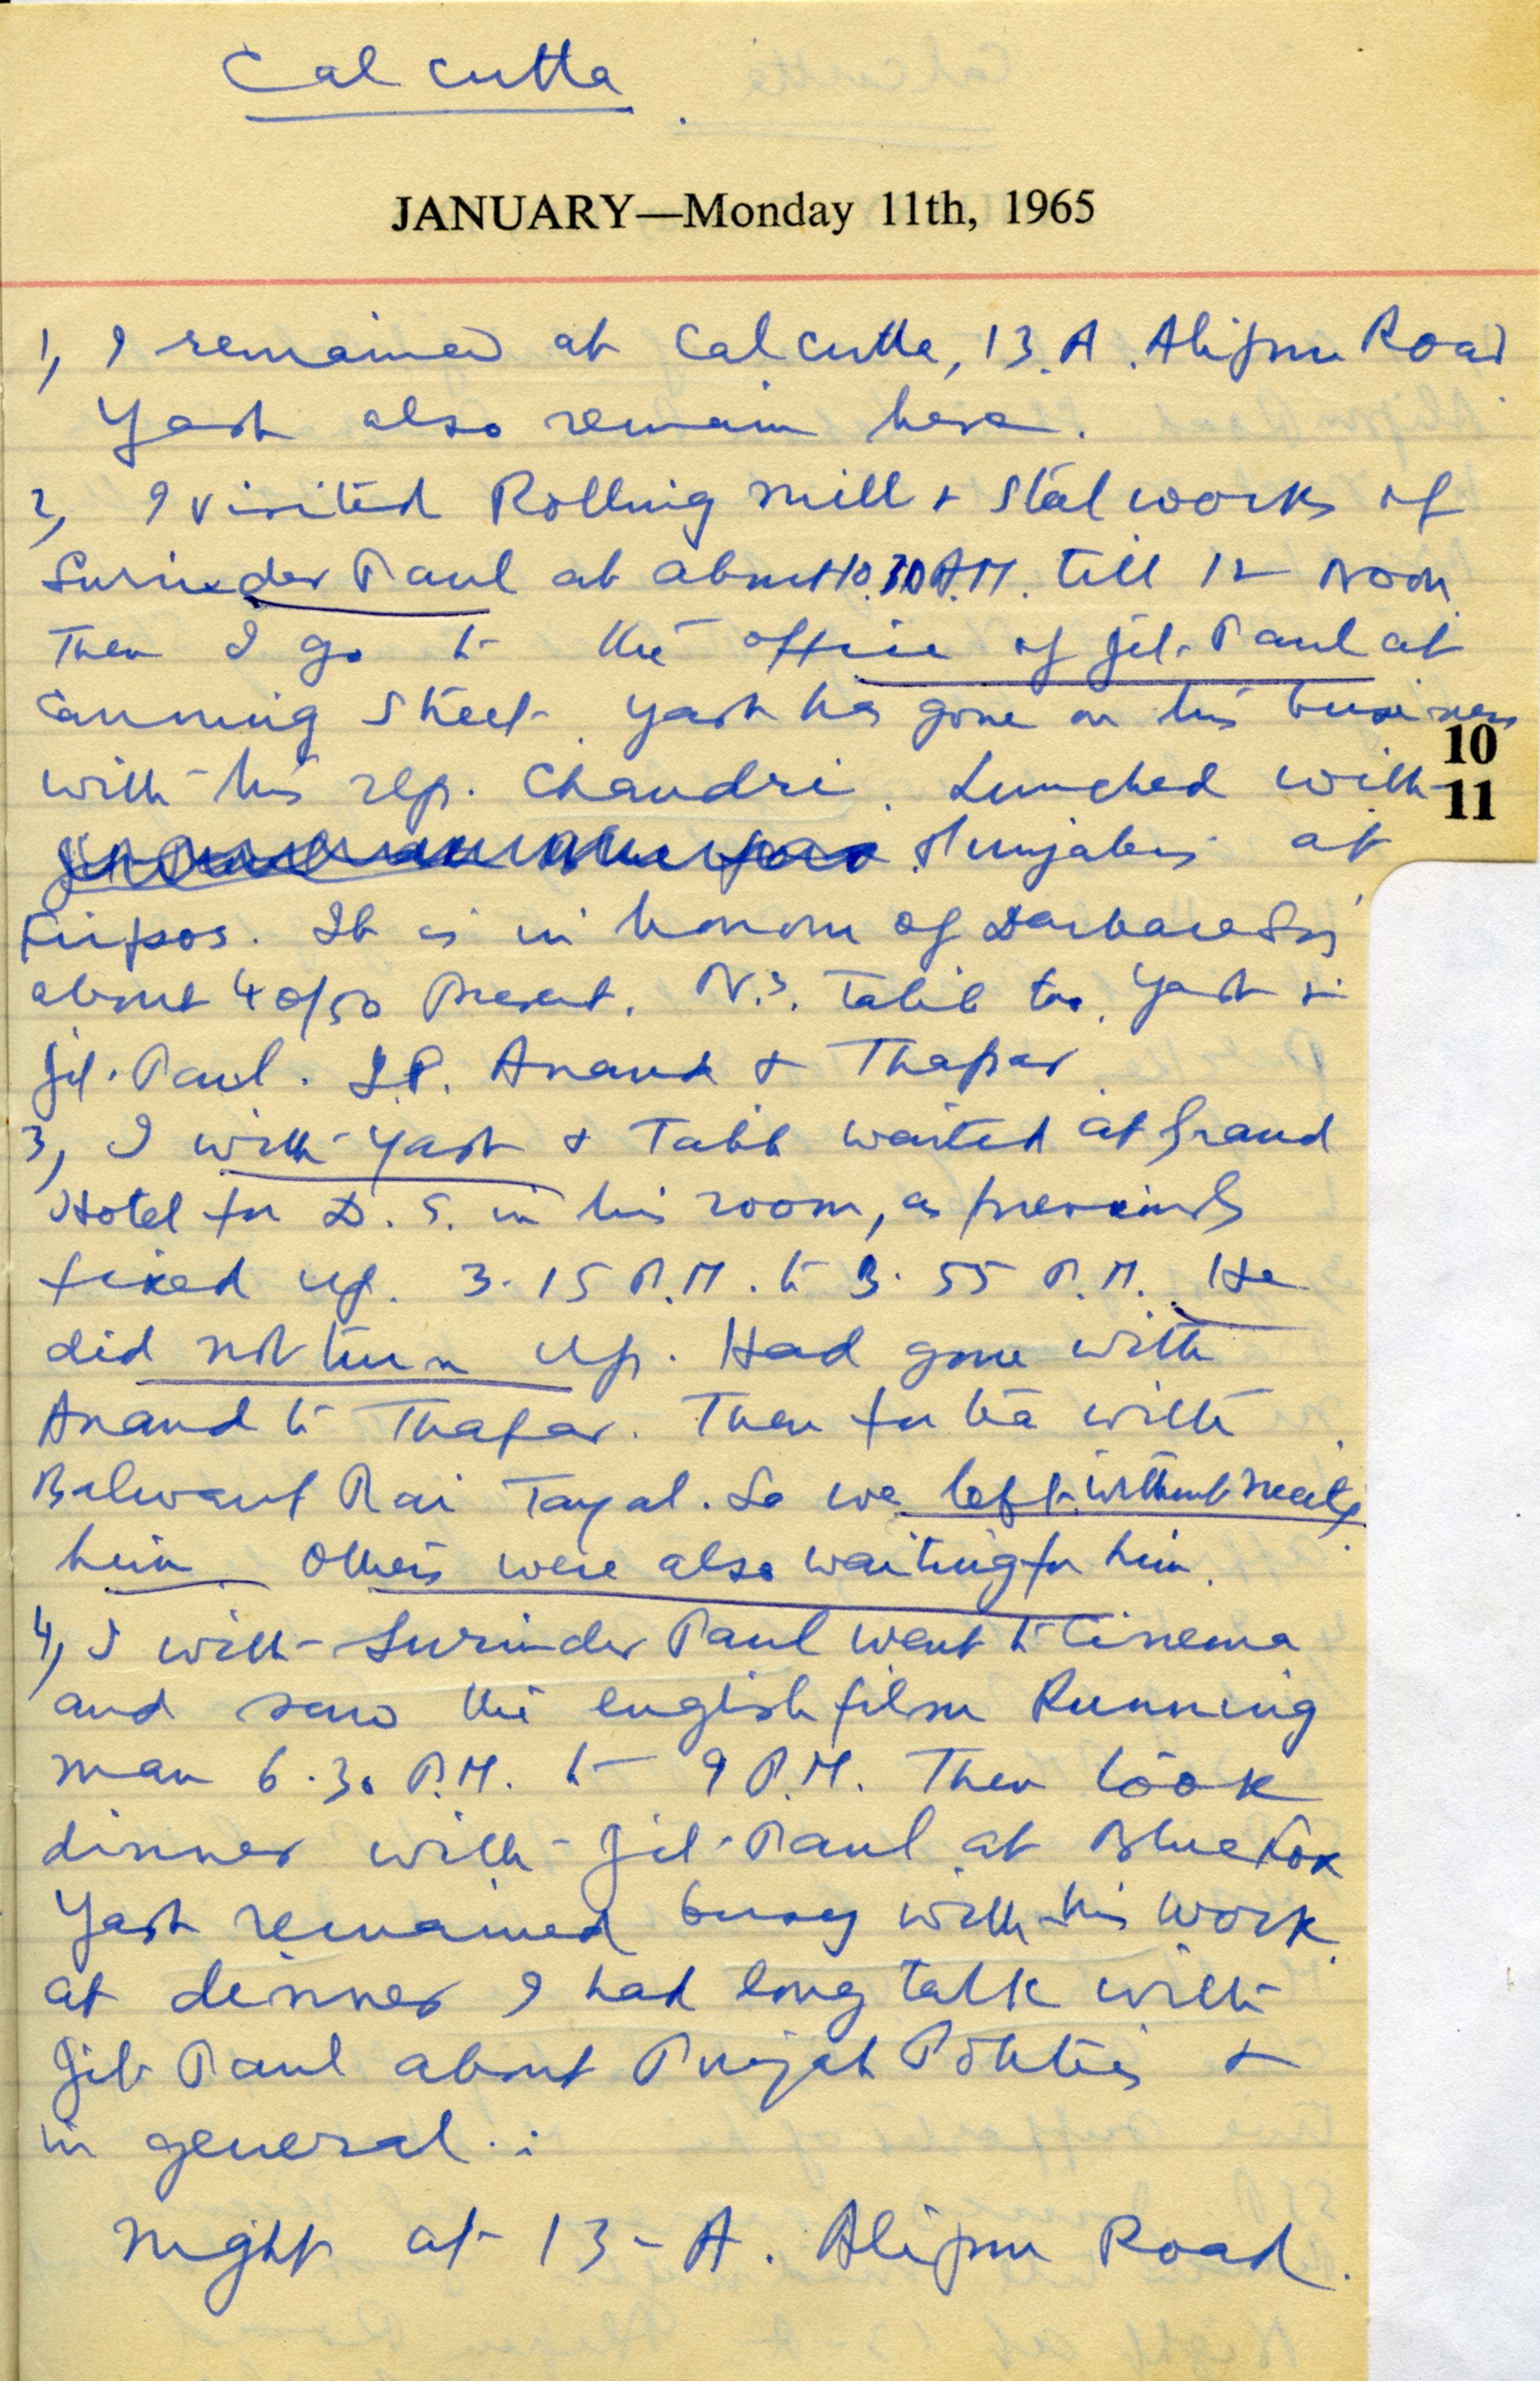 Calcutta.
JANUARY—Monday 11th, 1965
1, I remained at Calcutta, 13.A. Alipur Road
Yash also remain here.
2, I visited Rolling Mill & Steel works of
Surinder Paul at about 10.30 A.M. till 12 Noon.
Then I go to the office of Jit Paul at
Canning Street. Yash has gone on his business
10
with his rep. Chandri. Lunched with
11
Punjabis at
Firpos. It is in honour of Darbara
about 40/50 Present. N.S. Talib too. Yash &
Jit. Paul. I.P. Anand & Thapar
3, I with Yash & Talib waited at Grand
Hotel for D.S. in his room, as previously
fixed up. 3.15 P.M. to 3.55 P.M. He
did not turn up. Had gone with
Anand to Thapar. Then for tea with
Balwant Rai Tayal. So we left without meeting
him. Others were also waiting for him.
4, I with Surinder Paul went to Cinema
and saw the english film Running
man 6.30 P.M. to 9 P.M. Then took
dinner with Jit Paul at Blue Fox
Yash remained busy with his work.
at dinner I had long talk with
Jit Paul about Punjab Politics &
in general.
Night at 13-A. Alipur Road.